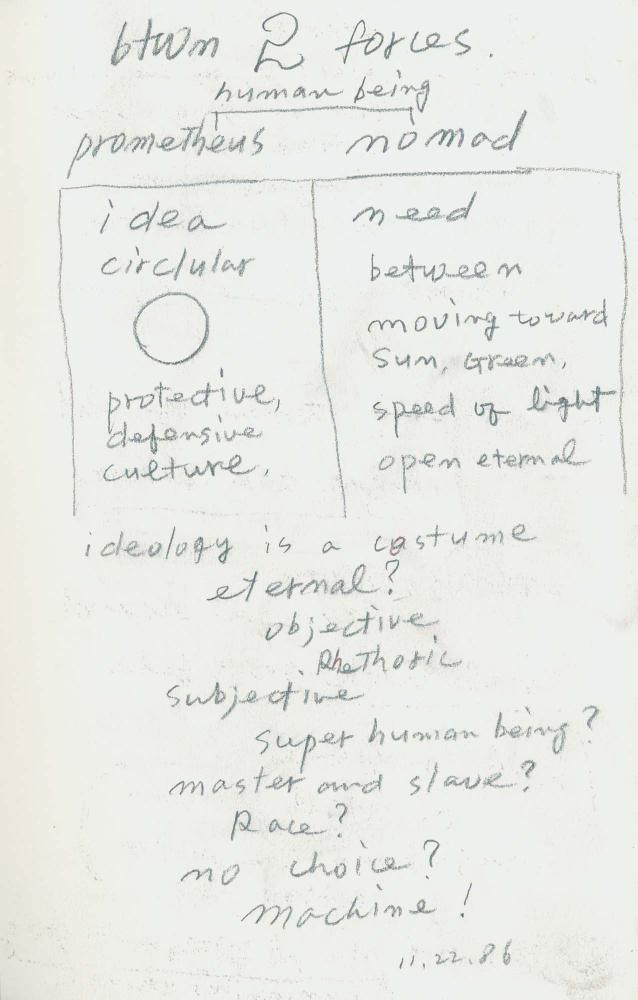 btwn 2 forces.
human being
prometheus nomad
idea need
circlular between
moving toward
Sun, Green,
protective, speed of light
defensive
culture. open eternal
ideology is a costume
eternal?
objective
Rhethoric
subjective
super human being?
master and slave?
Race?
no choice?
machine!
11.22.86